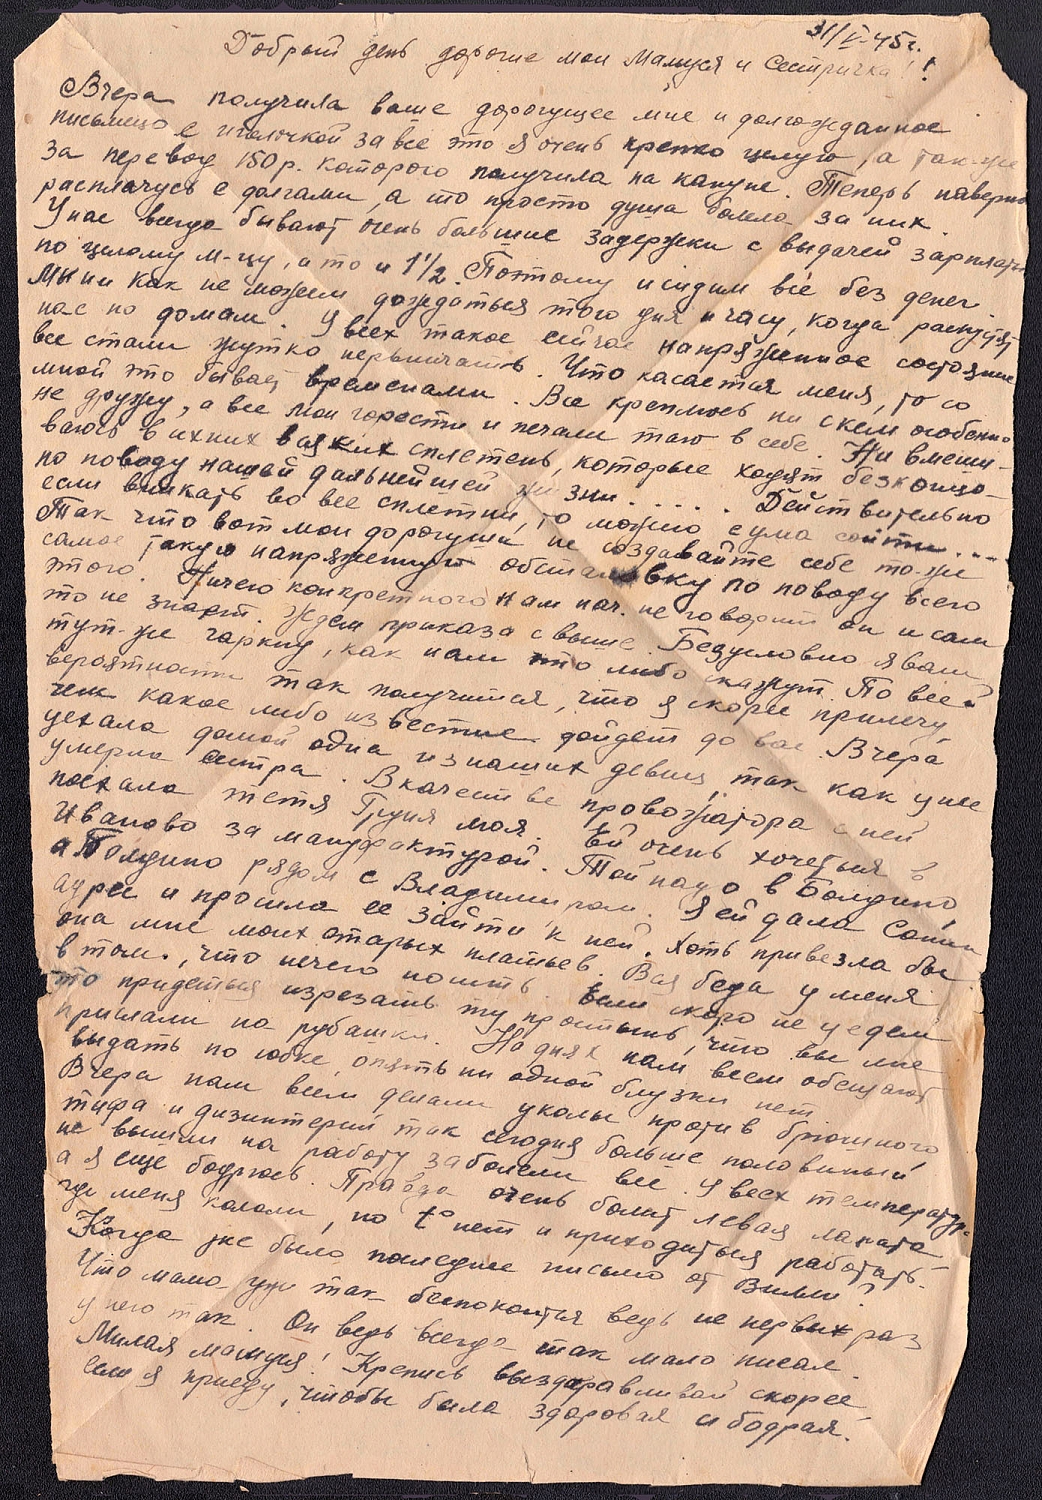 31/V-45г.
Добрый день дорогие мои Мамуся и Сестричка!!
Вчера получила ваше дорогущее мне и долгожданное
письмецо с иголочкой за всё это я очень крепко целую, а также
за перевод 150р. которого получила на кануне. Теперь наверно
расплачусь с долгами, а то просто душа болела за них.
У нас всегда бывают очень большие задержки с выдачей зарплаты
по целому м-цу, а то и 1½. Поэтому и сидим все без денег
Мы ни как не можем дождаться того дня и часу, когда распустят
нас по домам. У всех такое сейчас напряженное состояние
все стали жутко нервничать. Что касается меня, то со
мной это бывает временами. Все креплюсь ни с кем особенно
не дружу, а все мои горести и печали таю в себе. Ни вмеши-
ваюсь в ихних всяких сплетень, которые ходят безконцо-
по поводу нашей дальнейшей жизни...... Действительно
если вникать во все сплетни, то можно с ума сойти....
Так что вот мои дорогуши не создавайте себе то-же
самое такую напряженную обстановку по поводу всего
этого. Ничего конкретного нам нач. не говорит он и сам
то не знает. Ждем приказа с выше. Безусловно я вам
тут-же черкну, как нам что либо скажут. По всей
вероятности так получится, что я скорее прилечу,
чем какое либо известие дойдет до вас. Вчера
уехала домой одна из наших девиц, так как у нее
умерла сестра. В качестве провожатора с ней
поехала тетя Груня моя. Ей очень хочеться в
Иваново за мануфактурой. Той надо в Болдино,
а Болдино рядом с Владимиром. Я ей дала Сонин
адрес и просила ее зайти к ней. Хоть привезла бы
она мне моих старых платьев. Вся беда у меня
в том, что нечего носить. Если скоро не уедем
то придеться изрезать ту простынь, что вы мне
прислали на рубашки. На днях нам всем обещают
выдать по юбке, опять ни одной блузки нет
Вчера нам всем делали уколы против брюшного
тифа и дизинтерий так сегодня больше половиный
не вышли на работу заболели все. У всех температур.
а я еще бодрюсь. Правда очень болит левая лапата
где меня кололи, но t° нет и приходиться работать.
Когда же было последнее письмо от Вильи?
Что мама уж так беспокоится ведь не первый раз
у него так. Он ведь всегда так мало писал
Милая мамуся! Крепись выздоравливай скорее
если я приеду, чтобы была здоровая и бодрая.